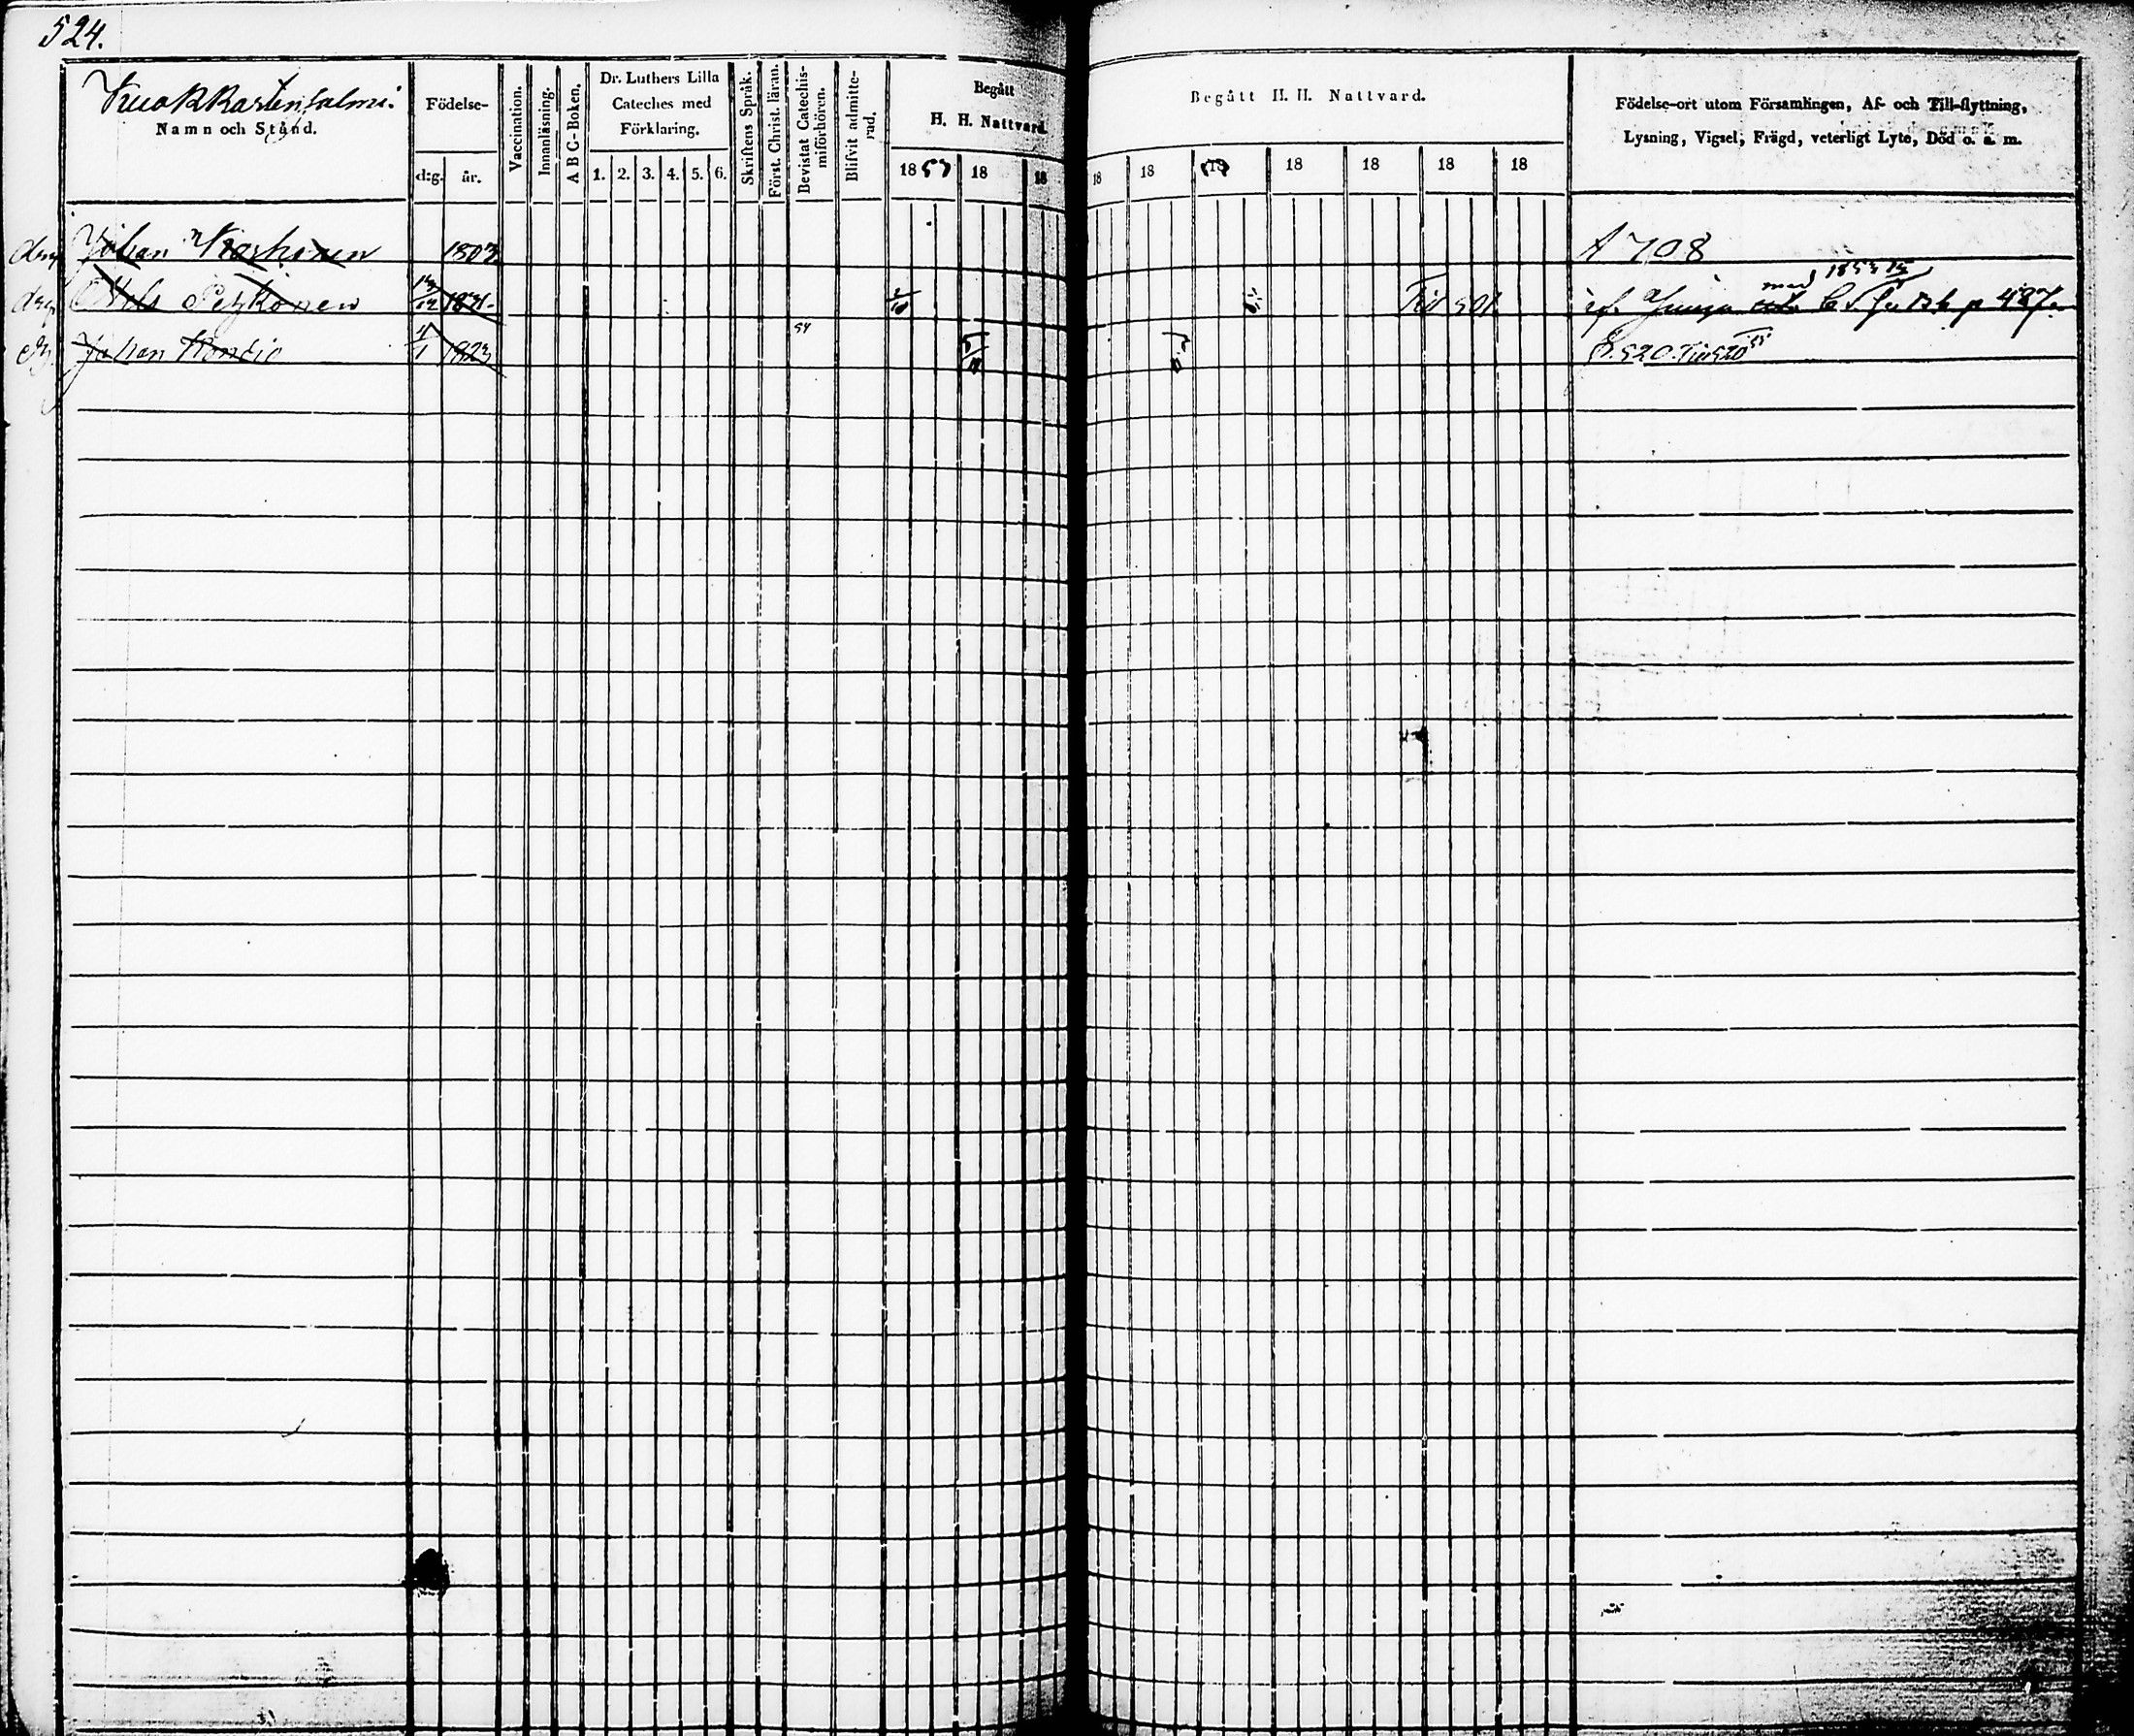 524.
Kuokkastensalmi.
Namn och Stånd.
Födelse-
d:g. år.
Vaccination.
Innanläsning.
A B C-Boken.
Dr. Luthers Lilla
Cateches med
Förklaring.
1. 2. 3. 4. 5. 6.
Skriftens Språk.
Först. Christ. läran.
Bevistat Catechis-
miförhören.
Blifvit admitte-
rad.
Begått
H. H. Nattvard.
1853 18 18
Begått H. H. Nattvard.
18 18 18 18 18 18 18
Födelse-ort utom Församlingen, Af- och Till-flyttning,
Lysning, Vigsel, Frägd, veterligt Lyte, Död o. s. m.
Johan Korhonen 1803 A 708
Nils Petzkonen 13/12 1831. Till 501. med p 487.
Johan 1/1 1823 54 S. 520. Till 520 55